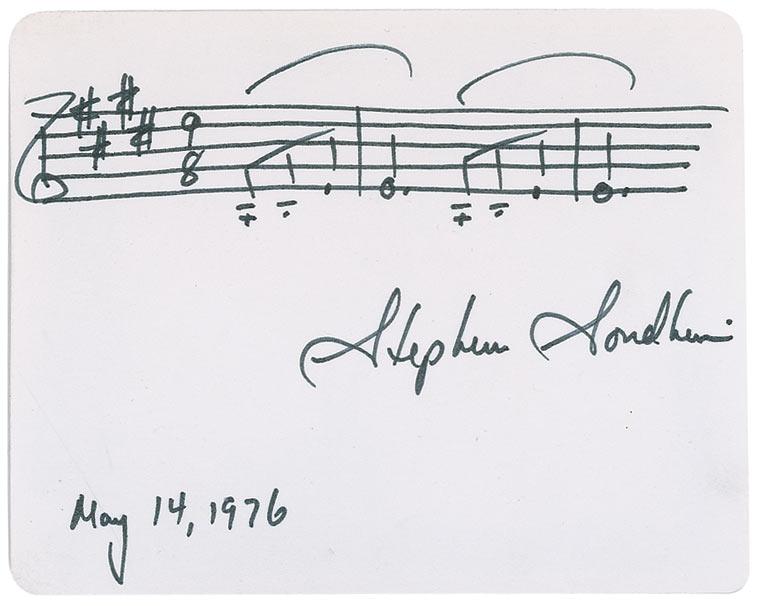 9
8
Stephen Sondheim
May 14, 1976